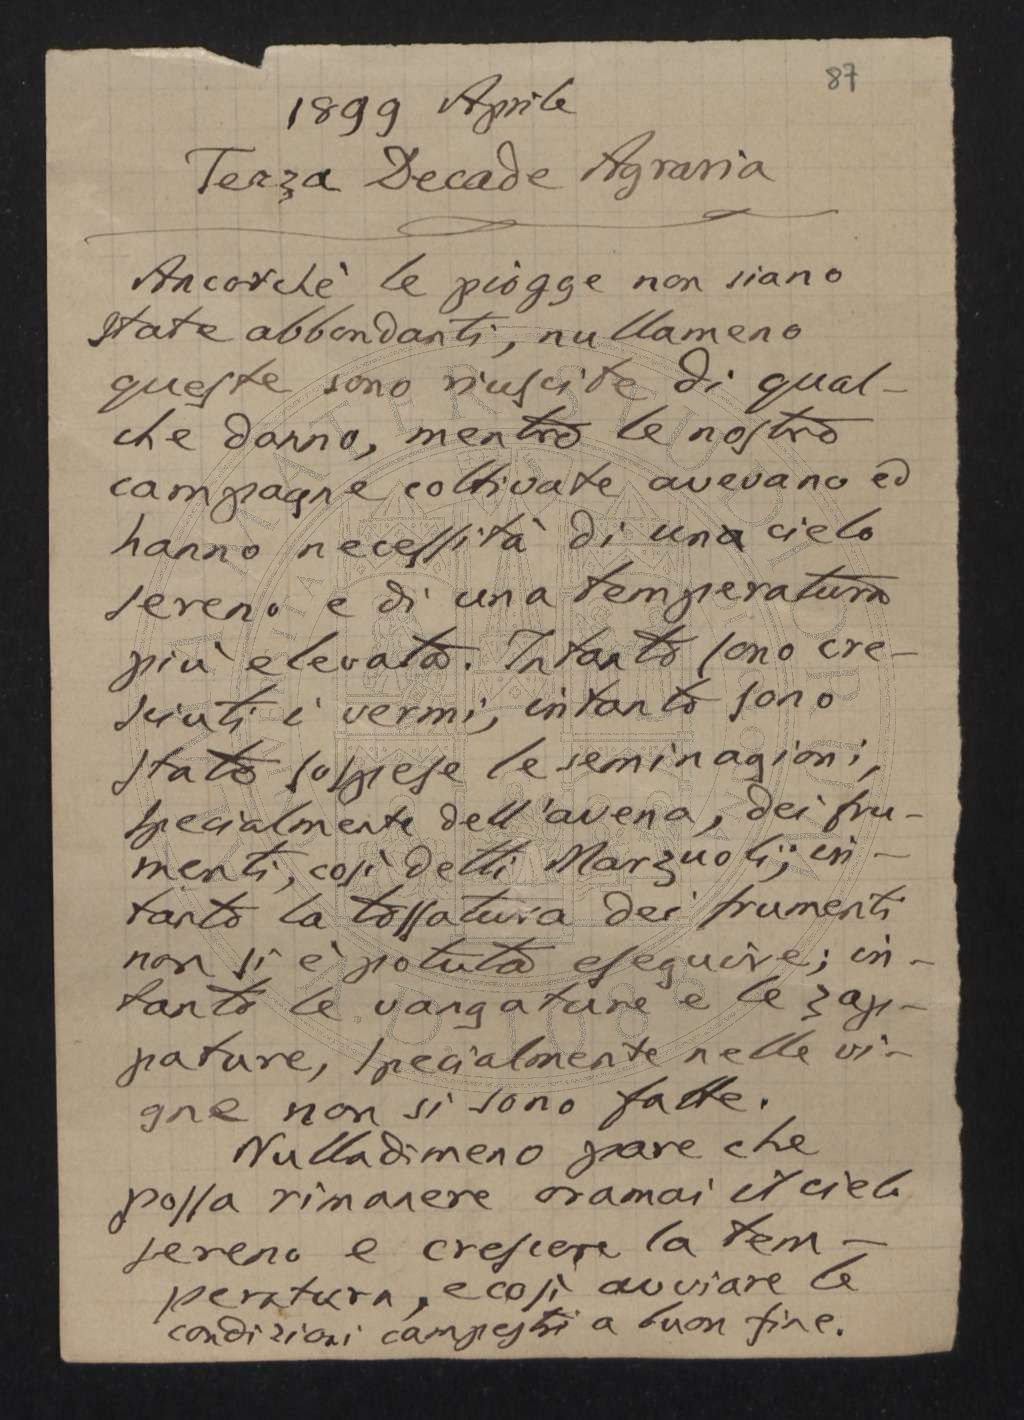 87
1899 Aprile
Terza Decade Agraria
Ancorchè le piogge non siano
state abbondanti, nullameno
queste sono riuscite di qual-
che danno, mentre le nostre
campagne coltivate avevano ed
hanno necessità di una cielo
sereno e di una temperatura
più elevata. Intanto sono cre-
sciuti i vermi, intanto sono
state sospese le seminagioni,
specialmente dell'avena, dei fru-
menti, così detti Marzuoli; in-
tanto la tossatura dei frumenti
non si è potuta eseguire; in-
tanto le vangature e le zap-
pature, specialmente nelle vi-
gne non si sono fatte.
Nulladimeno pare che
possa rimanere oramai il cielo
sereno e crescere la tem-
peratura, e così avviare le
condizioni campestri a buon fine.
ALMA MATER STUDIORUM
A.D. 1088